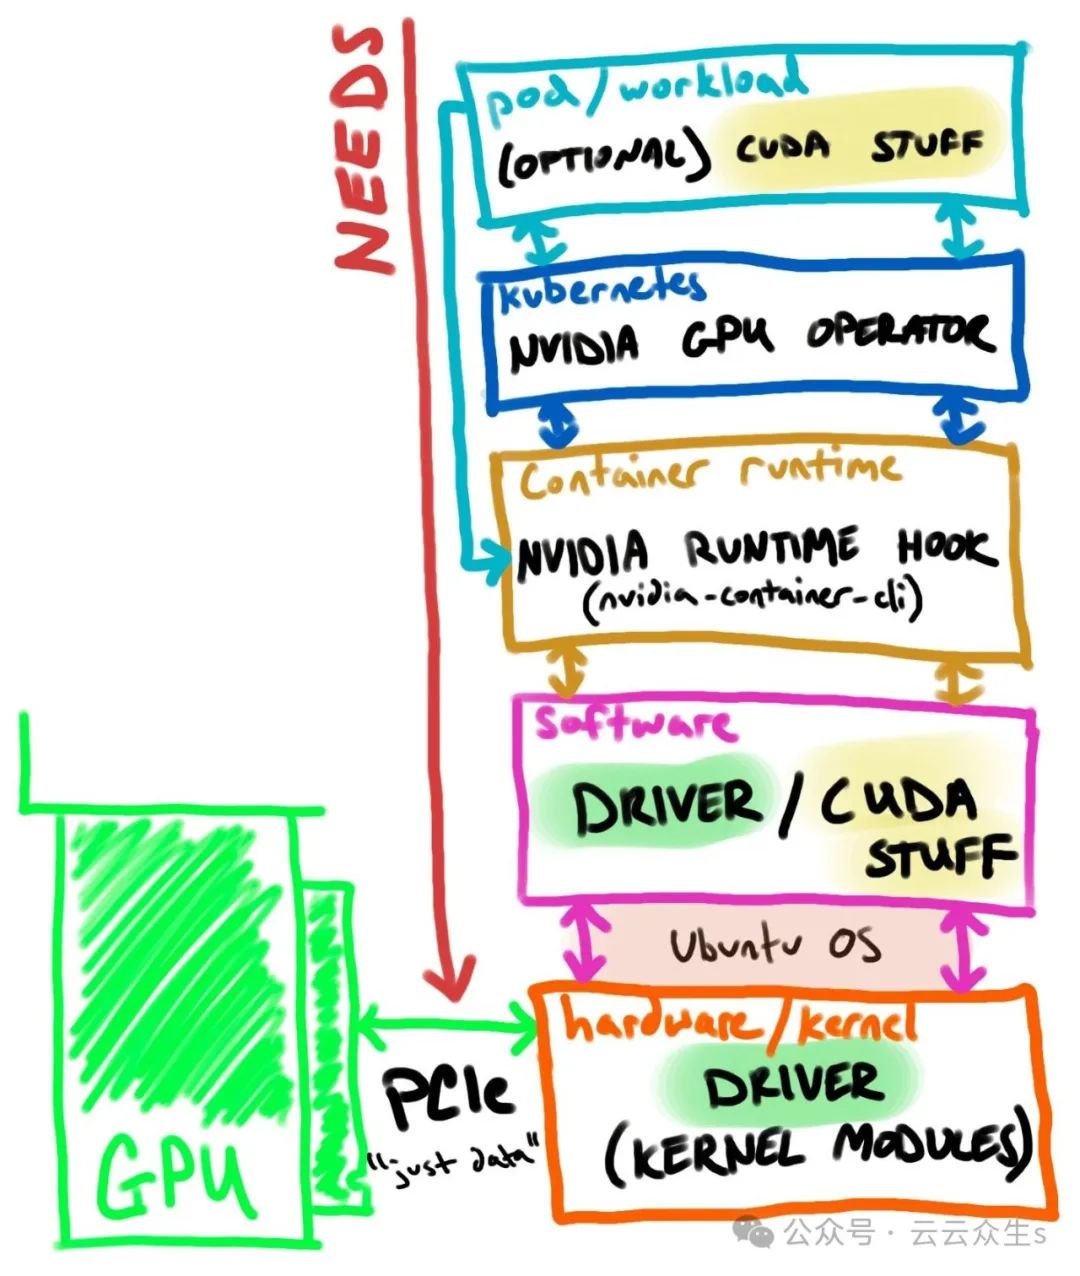 NEEDS
pod/workload
(OPTIONAL) CUDA STUFF
kubernetes
NVIDIA GPU OPERATOR
Container runtime
NVIDIA RUNTIME HOOK
(nvidia-container-cli)
Software
DRIVER / CUDA
STUFF
Ubuntu OS
hardware/kernel
DRIVER
(KERNEL MODULES)
PCIe
"just data"
GPU
公众号 · 云云众生s